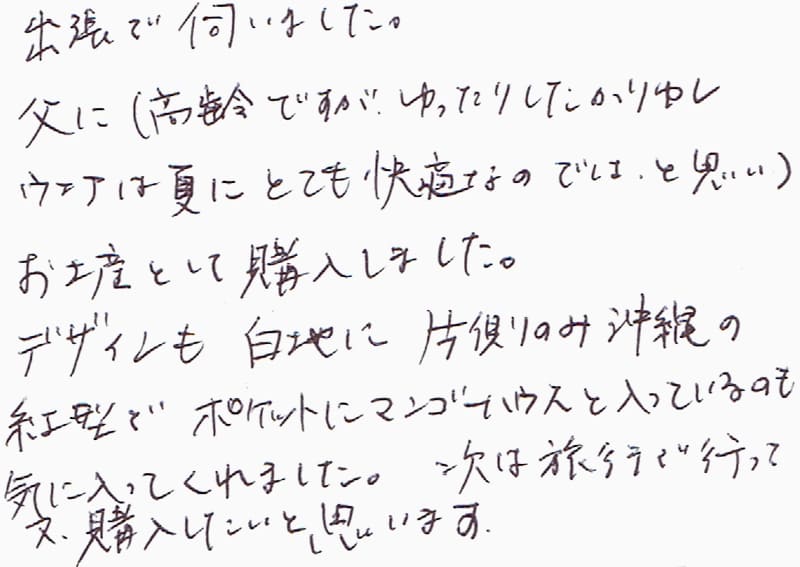 出張で伺いました。
父に(高齢ですが、ゆったりしたかりゆし
ウェアは夏にとても快適なのでは、と思い)
お土産として購入しました。
デザインも白地に片側のみ沖縄の
紅型でポケットにマンゴーハウスと入っているのも
気に入ってくれました。次は旅行で行って
又、購入したいと思います。